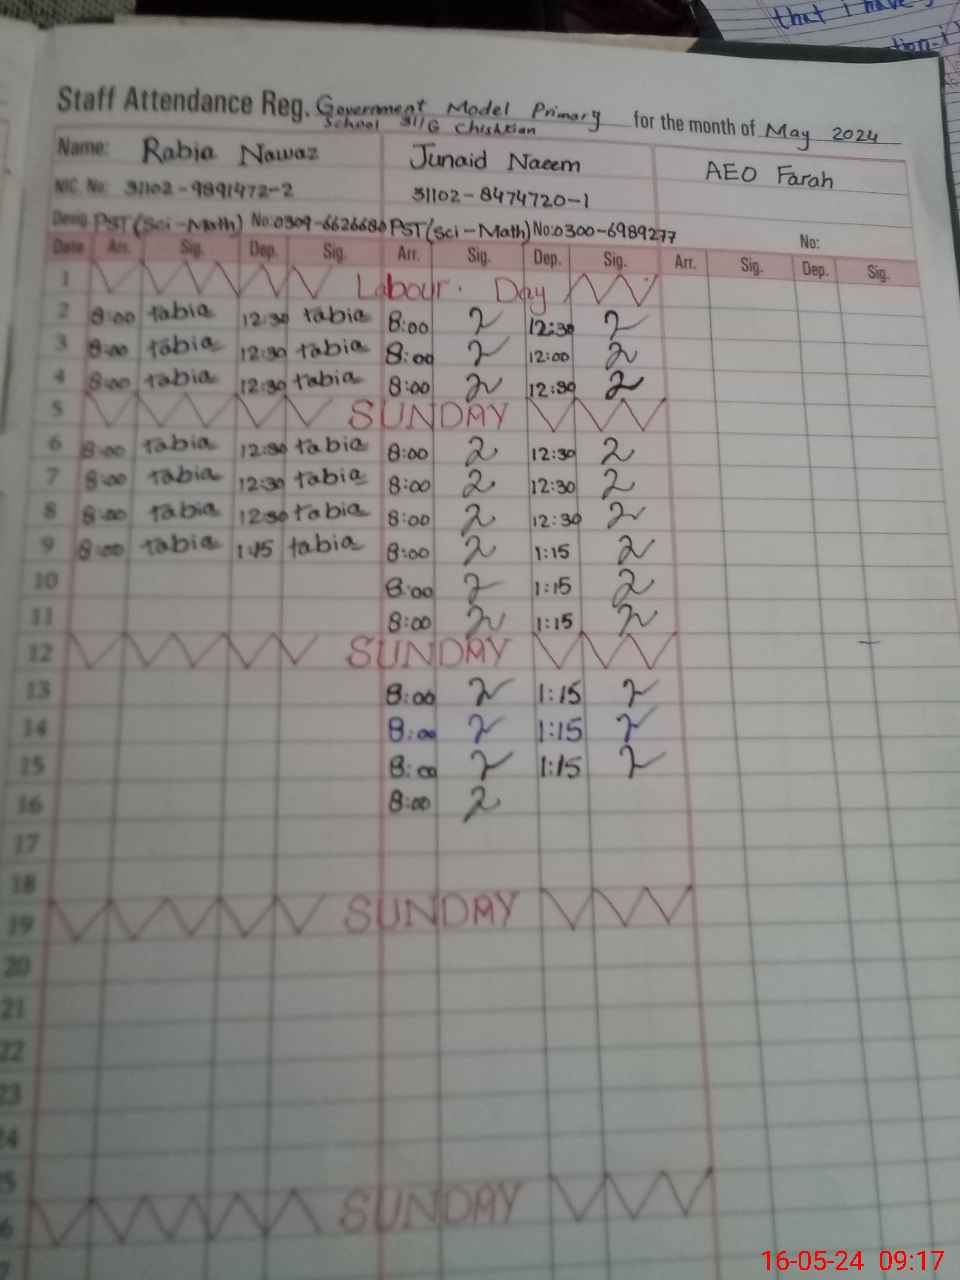 that i have
tion-i
Staff Attendance Reg. Government Model Primary School 311/G Chishtian for the month of May 2024
Name: Rabia Nawaz Junaid Naeem AEO Farah
NIC. No: 31102-9891472-2 31102-8474720-1
Desig. PST(Sci-Math) No:0309-6626680 PST(Sci-Math) No:0300-6989277 No:
Date Arr. Sig. Dep. Sig. Arr. Sig. Dep. Sig. Arr. Sig. Dep. Sig.
1 Labour Day
2 8:00 tabia 12:30 tabia 8:00 12:30
3 8:00 tabia 12:30 tabia 8:00 12:00
4 8:00 tabia 12:30 tabia 8:00 12:30
5 SUNDAY
6 8:00 tabia 12:30 tabia 8:00 12:30
7 8:00 tabia 12:30 tabia 8:00 12:30
8 8:00 tabia 12:30 tabia 8:00 12:30
9 8:00 tabia 1:15 tabia 8:00 1:15
10 8:00 1:15
11 8:00 1:15
12 SUNDAY
13 8:00 1:15
14 8:00 1:15
15 8:00 1:15
16 8:00
17
18
19 SUNDAY
20
21
22
23
24
25
26 SUNDAY
16-05-24 09:17